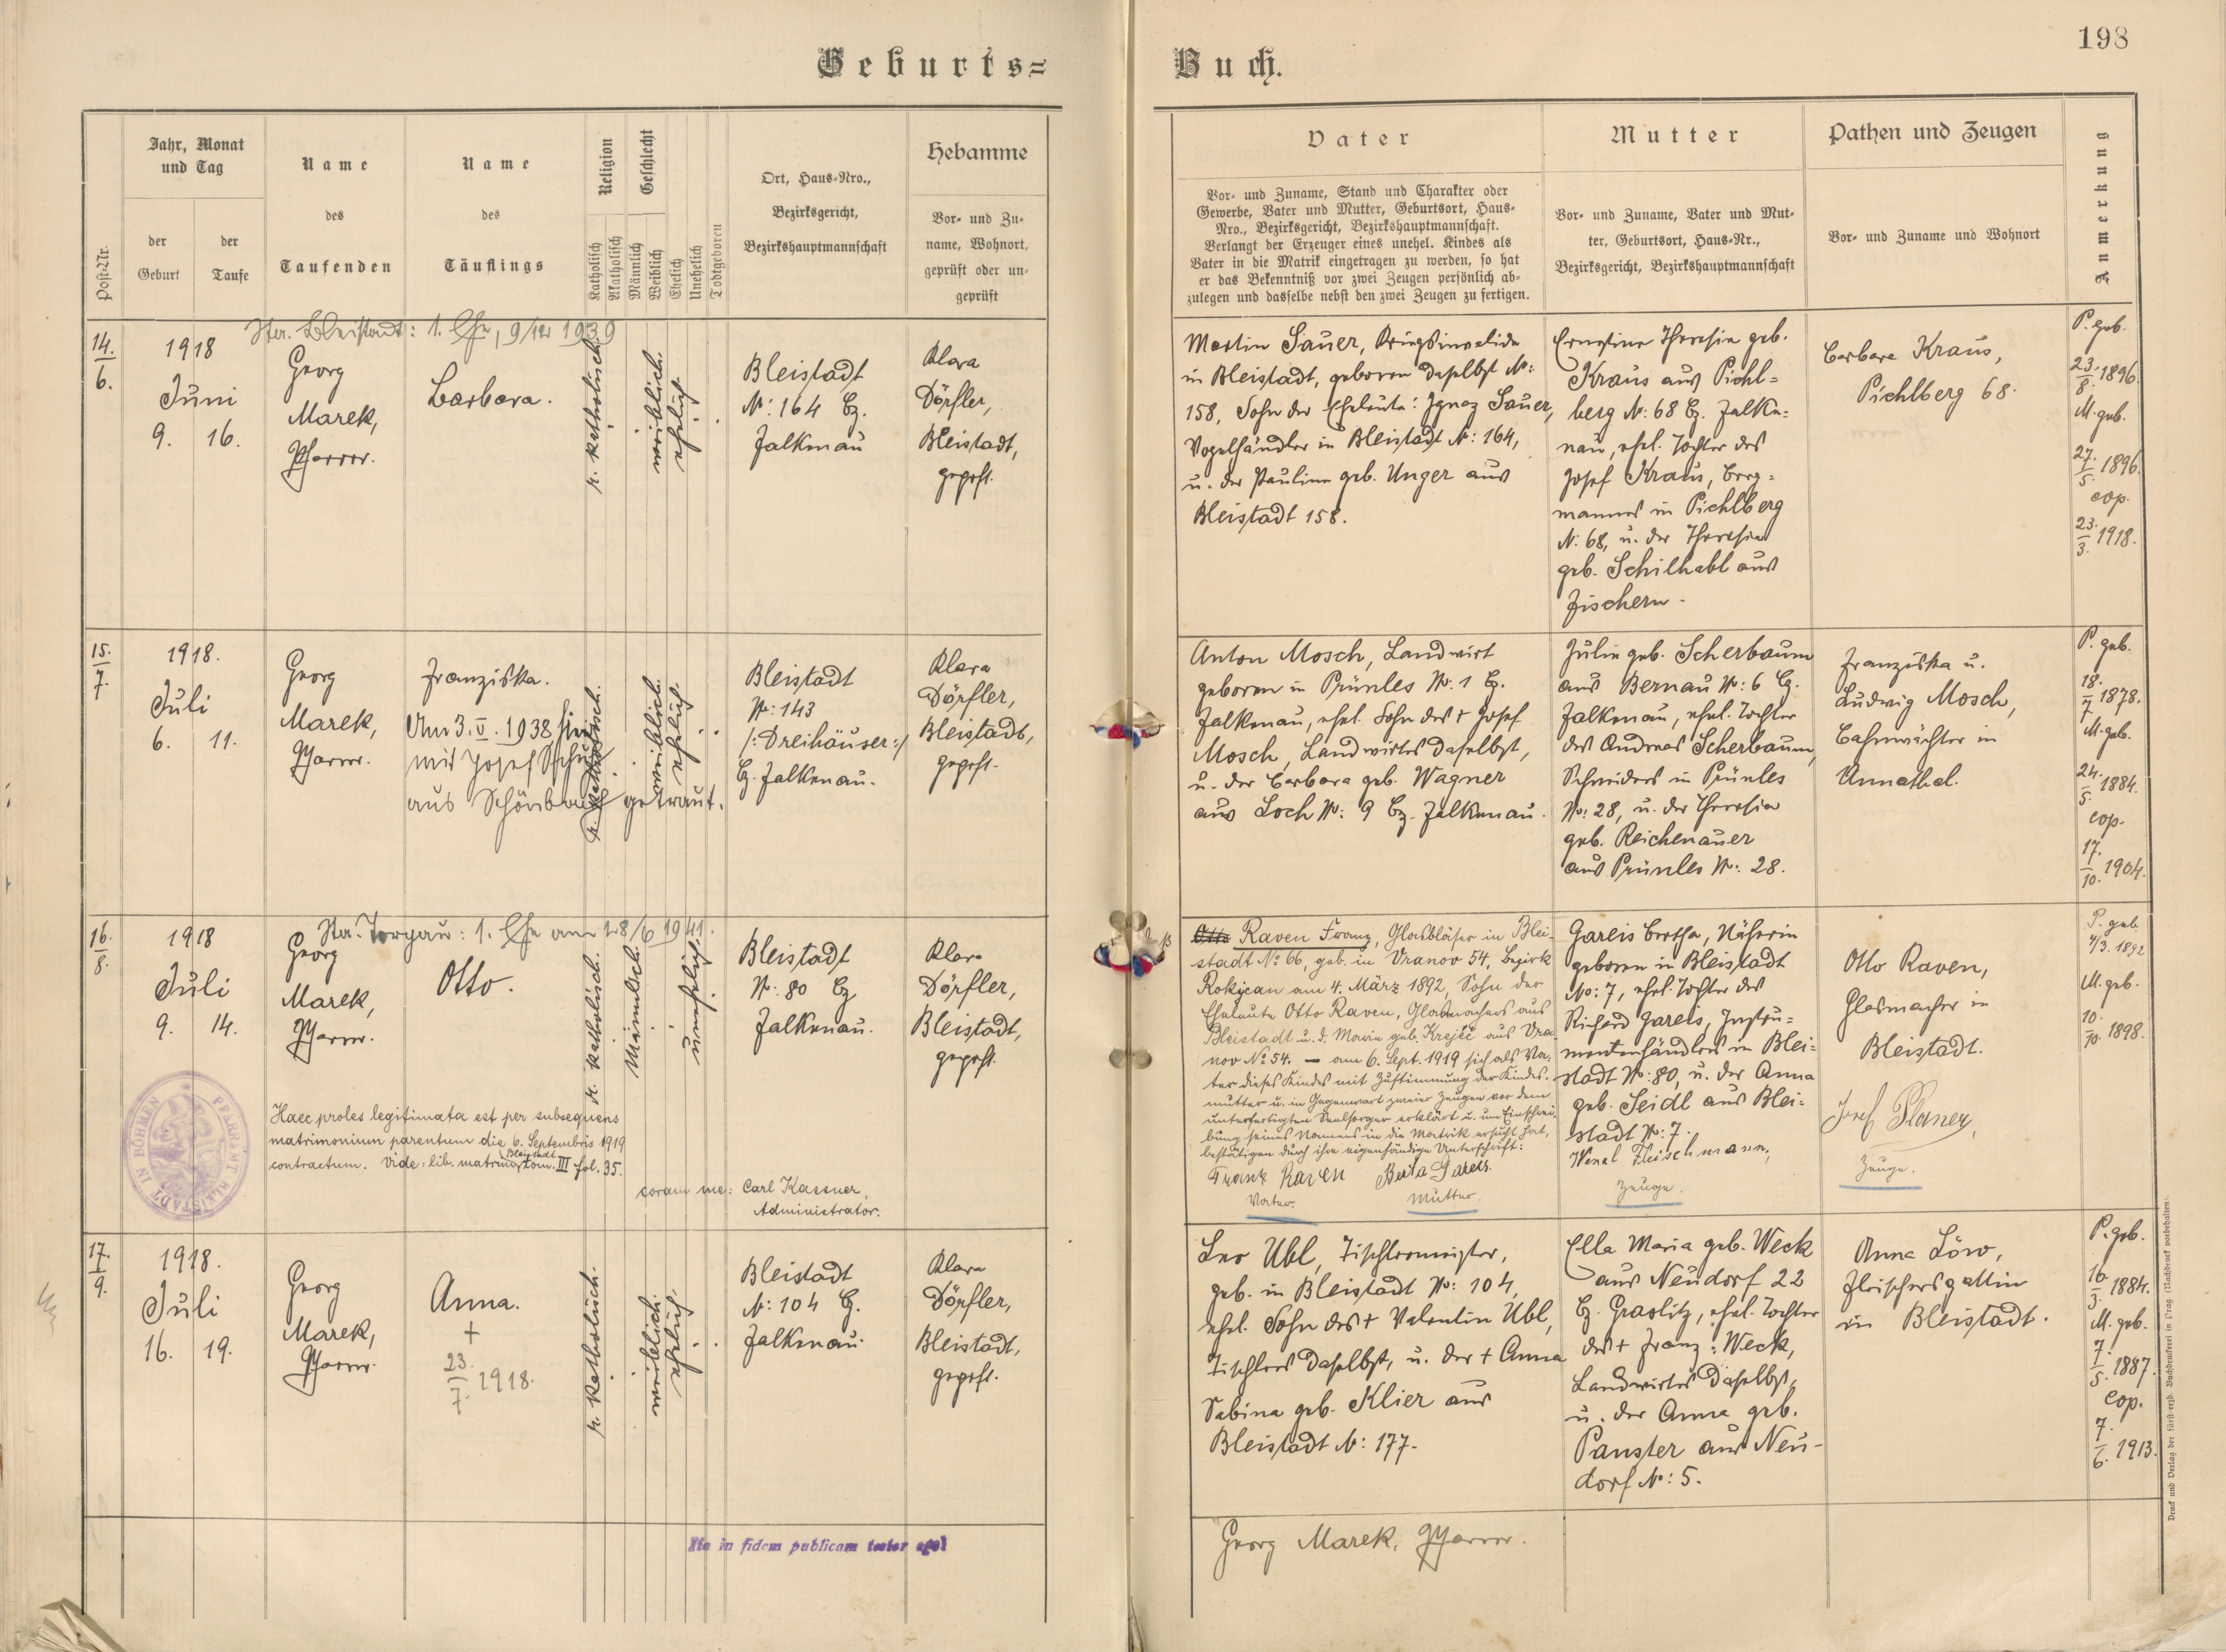 198
Geburts=
Buch.
Post-Nr.
Jahr, Monat
und Tag
der
Geburt
der
Taufe
Name
des
Taufenden
Name
des
Täuflings
Religion
Katholisch
Akatholisch
Geschlecht
Männlich
Weiblich
Ehelich
Unehelich
Todtgeboren
Ort, Haus-Nro.,
Bezirksgericht,
Bezirkshauptmannschaft
Hebamme
Vor- und Zu-
name, Wohnort,
geprüft oder un-
geprüft
Vater
Vor- und Zuname, Stand und Charakter oder
Gewerbe, Vater und Mutter, Geburtsort, Haus-
Nro., Bezirksgericht, Bezirkshauptmannschaft.
Verlangt der Erzeuger eines unehel. Kindes als
Vater in die Matrik eingetragen zu werden, so hat
er das Bekenntniß vor zwei Zeugen persönlich ab-
zulegen und dasselbe nebst den zwei Zeugen zu fertigen.
Mutter
Vor- und Zuname, Vater und Mut-
ter, Geburtsort, Haus-Nr.,
Bezirksgericht, Bezirkshauptmannschaft
Pathen und Zeugen
Vor- und Zuname und Wohnort
Anmerkung
14.
6.
1918
Juni
9. 16.
Sta. Bleistadt: 1. Ehe, 9/12 1939
Georg
Marek,
Pfarrer.
Barbara.
r. katholisch.
weiblich.
ehelich.
Bleistadt
N: 164 Bz.
Falkenau
Klara
Dörfler,
Bleistadt,
geprft.
Martin Sauer, Kriegsinvalide
in Bleistadt, geboren daselbst N:
158, Sohn der Eheleute: Ignaz Sauer,
Vogelhändler in Bleistadt N: 164,
u. der Pauline geb. Unger aus
Bleistadt 158.
Ernestine Theresia geb.
Kraus aus Pichl=
berg N: 68 Bz. Falke=
nau, ehel. Tochter des
Josef Kraus, Berg=
mannes in Pichlberg
N: 68, u. der Theresia
geb. Schilhabl aus
Fischern.
Barbara Kraus,
Pichlberg 68.
P. geb.
23.
8. 1896.
M. geb.
27.
5. 1896.
cop.
23.
3. 1918.
15.
7.
1918.
Juli
6. 11.
Georg
Marek,
Pfarrer.
Franziska.
Am 3. V. 1938 hier
mit Josef
aus Schönbach getraut.
r. katholisch.
weiblich.
ehelich.
Bleistadt
N: 143
/: Dreihäuser :/
Bz. Falkenau.
Klara
Dörfler,
Bleistadt,
geprft.
Anton Mosch, Landwirt
geboren in Prünles N: 1 Bz.
Falkenau, ehel. Sohn des + Josef
Mosch, Landwirtes daselbst,
u. der Barbara geb. Wagner
aus Loch N: 9 Bz. Falkenau.
Julie geb. Scherbaum
aus Bernau N: 6 Bz.
Falkenau, ehel. Tochter
des Andreas Scherbaum,
Schneiders in Prünles
N: 28, u. der Theresia
geb. Reichenauer
aus Prünles N: 28.
Franziska u.
Ludwig Mosch,
Bahnwächter in
Annathal.
P. geb.
18.
7 1878.
M. geb.
24.
5. 1884.
cop.
17.
10. 1904.
16.
8.
1918
Juli
9. 14.
Sta. Torgau: 1. Ehe am 28/6 1941.
Georg
Marek,
Pfarrer.
Otto.
r. katholisch.
Männlich.
unehelich.
Bleistadt
N: 80 Bz
Falkenau.
Klara
Dörfler,
Bleistadt,
geprft.
PFARRAMT BLEISTADT IN BÖHMEN
Haec proles legitimata est per subsequens
matrimonium parentum die 6. Septembris 1919
contractum. Vide: lib. matrim. Bleistadt tom. III fol. 35.
coram me: Carl Kassner,
Administrator.
Otto Raven Franz, Glasbläser in Blei-
stadt No 66, geb. in Vranov 54, Bezirk
Rokycan am 4. März 1892, Sohn der
Eheleute Otto Raven, Glasmachers aus
Bleistadt u. d. Marie geb. Krejčí aus Vra-
nov No 54. — am 6. Sept. 1919 sich als Va-
ter dieses Kindes mit Zustimmung der Kindes-
mutter u. in Gegenwart zweier Zeugen vor dem
unterfertigten Seelsorger erklärt u. um Einschrei-
bung seines Namens in die Matrik ersucht hat,
bestätigen durch ihre eigenhändige Unterschrift:
Franz Raven Berta Gareis.
Vater. Mutter.
Gareis Bertha, Näherin
geboren in Bleistadt
No: 7, ehel. Tochter des
Richard Gareis, Instru=
mentenhändlers in Blei=
stadt N: 80, u. der Anna
geb. Seidl aus Blei=
stadt N: 7.
Wenzl Fleischmann,
Zeuge.
Otto Raven,
Glasmacher in
Bleistadt.
Josef Planer,
Zeuge.
P. geb.
4/3. 1892
M. geb.
10.
10. 1898.
17.
9.
1918.
Juli
16. 19.
Georg
Marek,
Pfarrer.
Anna.
+
23.
7. 1918.
r. katholisch.
weiblich.
ehelich.
Bleistadt
N: 104 Bz.
Falkenau.
Klara
Dörfler,
Bleistadt,
geprft.
Leo Ubl, Tischlermeister,
geb. in Bleistadt N: 104,
ehel. Sohn des + Valentin Ubl,
Tischlers daselbst, u. der + Anna
Sabina geb. Klier aus
Bleistadt N: 177.
Ella Maria geb. Weck
aus Neudorf 22
Bz. Graslitz, ehel. Tochter
des + Franz Weck,
Landwirtes daselbst,
u. der Anna geb.
Panster aus Neu-
dorf N: 5.
Anna Löw,
Fleischersgattin
in Bleistadt.
P. geb.
16.
3. 1884.
M. geb.
7.
5. 1887.
cop.
7.
6. 1913.
Ita in fidem publicam testor ego!
Georg Marek, Pfarrer.
Druck und Verlag der fürst-erzb. Buchdruckerei in Prag. (Nachdruck vorbehalten).